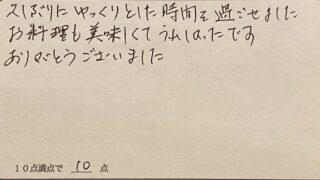 久しぶりにゆっくりとした時間を過ごせました
お料理も美味しくてうれしかったです
ありがとうございました
10点満点で 10 点